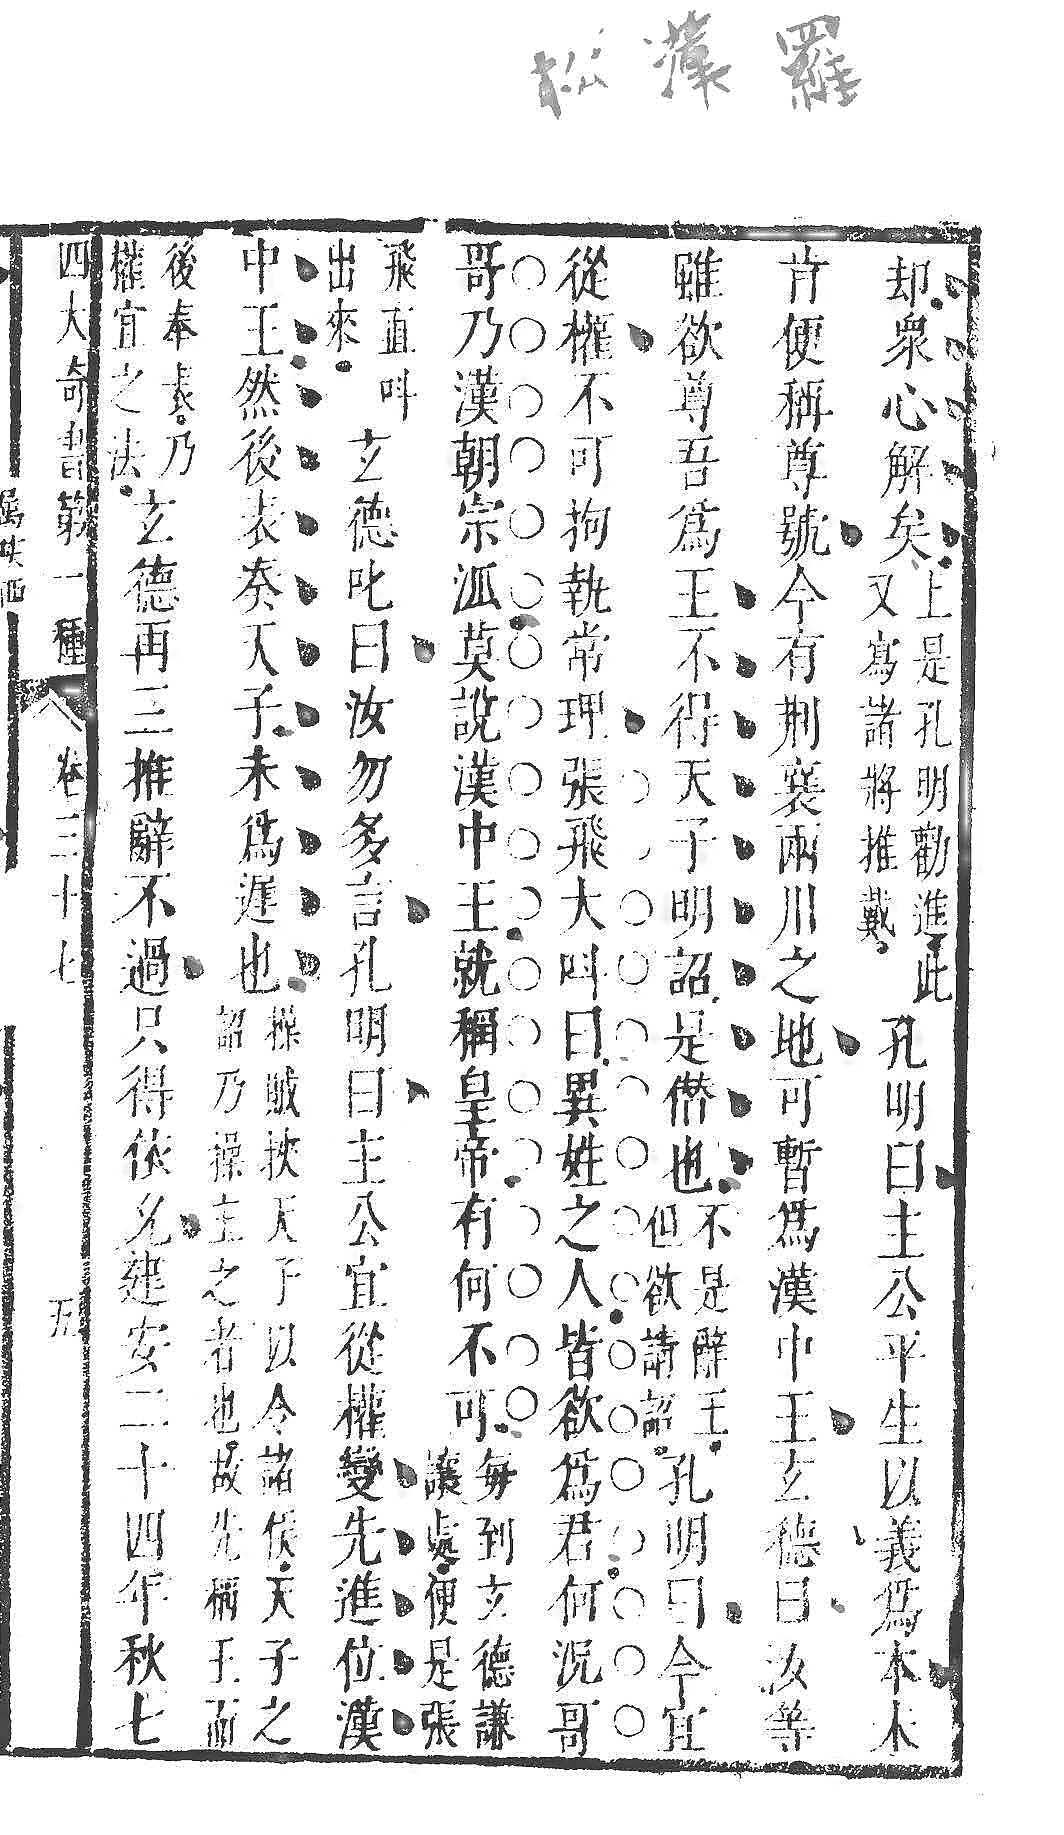 羅漢松
却衆心解矣
上是孔明勸進此
又寫諸將推戴
孔明曰主公平生以義爲本未
肯便稱尊號今有荆襄兩川之地可暫爲漢中王玄德曰汝等
雖欲尊吾爲王不得天子明詔是僭也
不是辭王
但欲請詔
孔明曰今宜
從權不可拘執常理張飛大呌曰異姓之人皆欲爲君何況哥
哥乃漢朝宗派莫說漢中王就稱皇帝有何不可
每到玄德謙
讓處便是張
飛直呌
出來
玄德叱曰汝勿多言孔明曰主公宜從權變先進位漢
中王然後表奏天子未爲遲也
操賊挾天子以令諸侯天子之
詔乃操主之者也故先稱王而
後奉表乃
權宜之法
玄德再三推辭不過只得依允建安二十四年秋七
四大奇書第一種 卷三十七 五